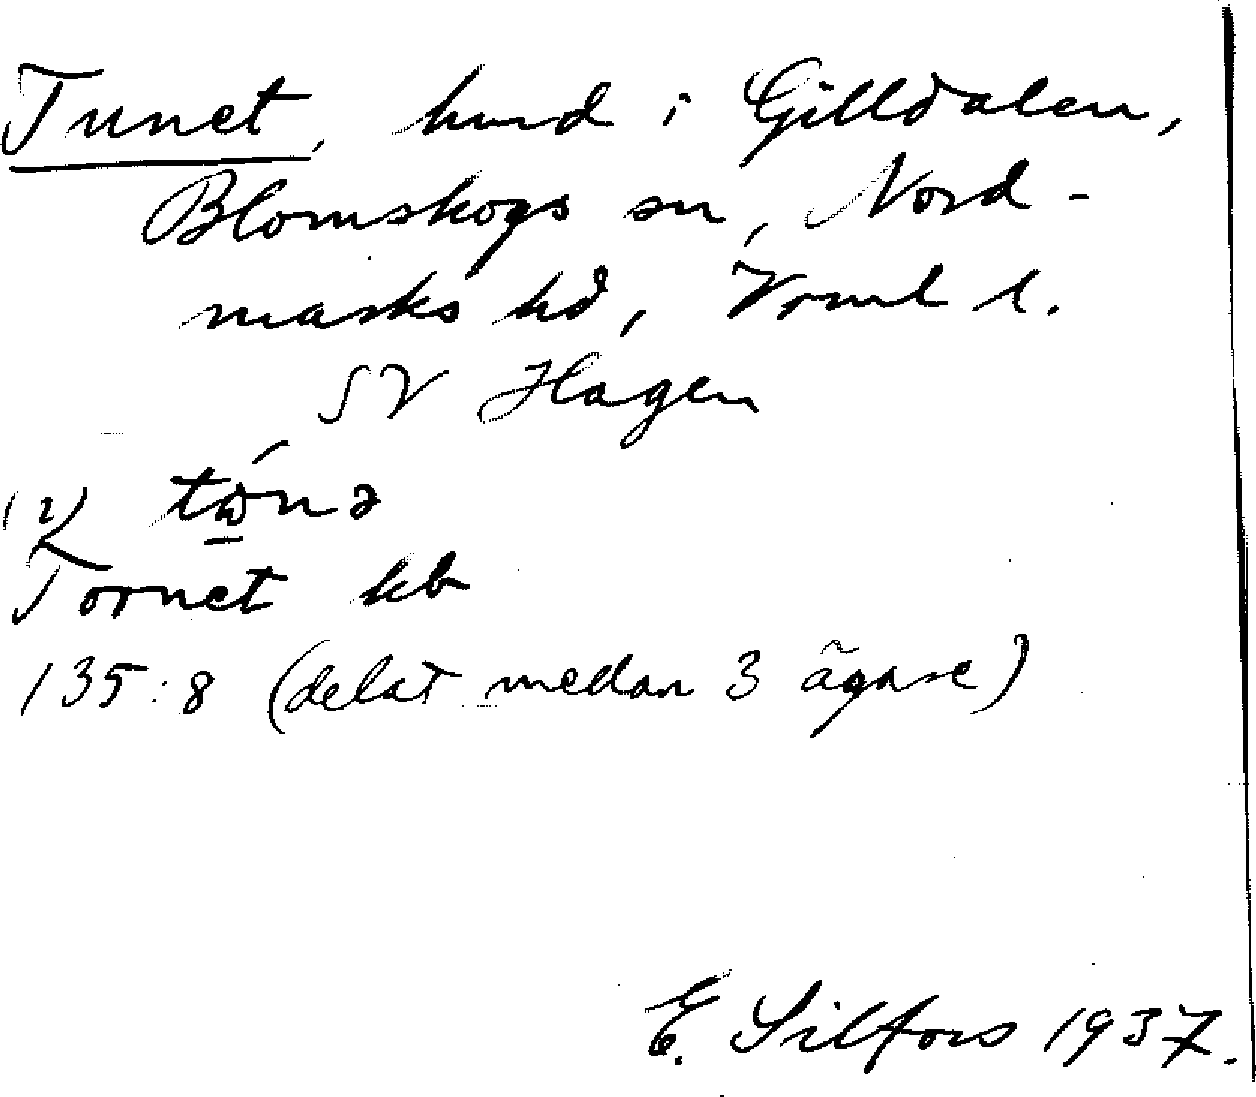 Tunet, hmd i Gilldalen,
Blomskogs sn, Nord-
marks hd, Vrml l.
SV Hagen
1, 2)
Tornet kb
135:8 (delat medan 3 ägare)
E. Silfors 1937.